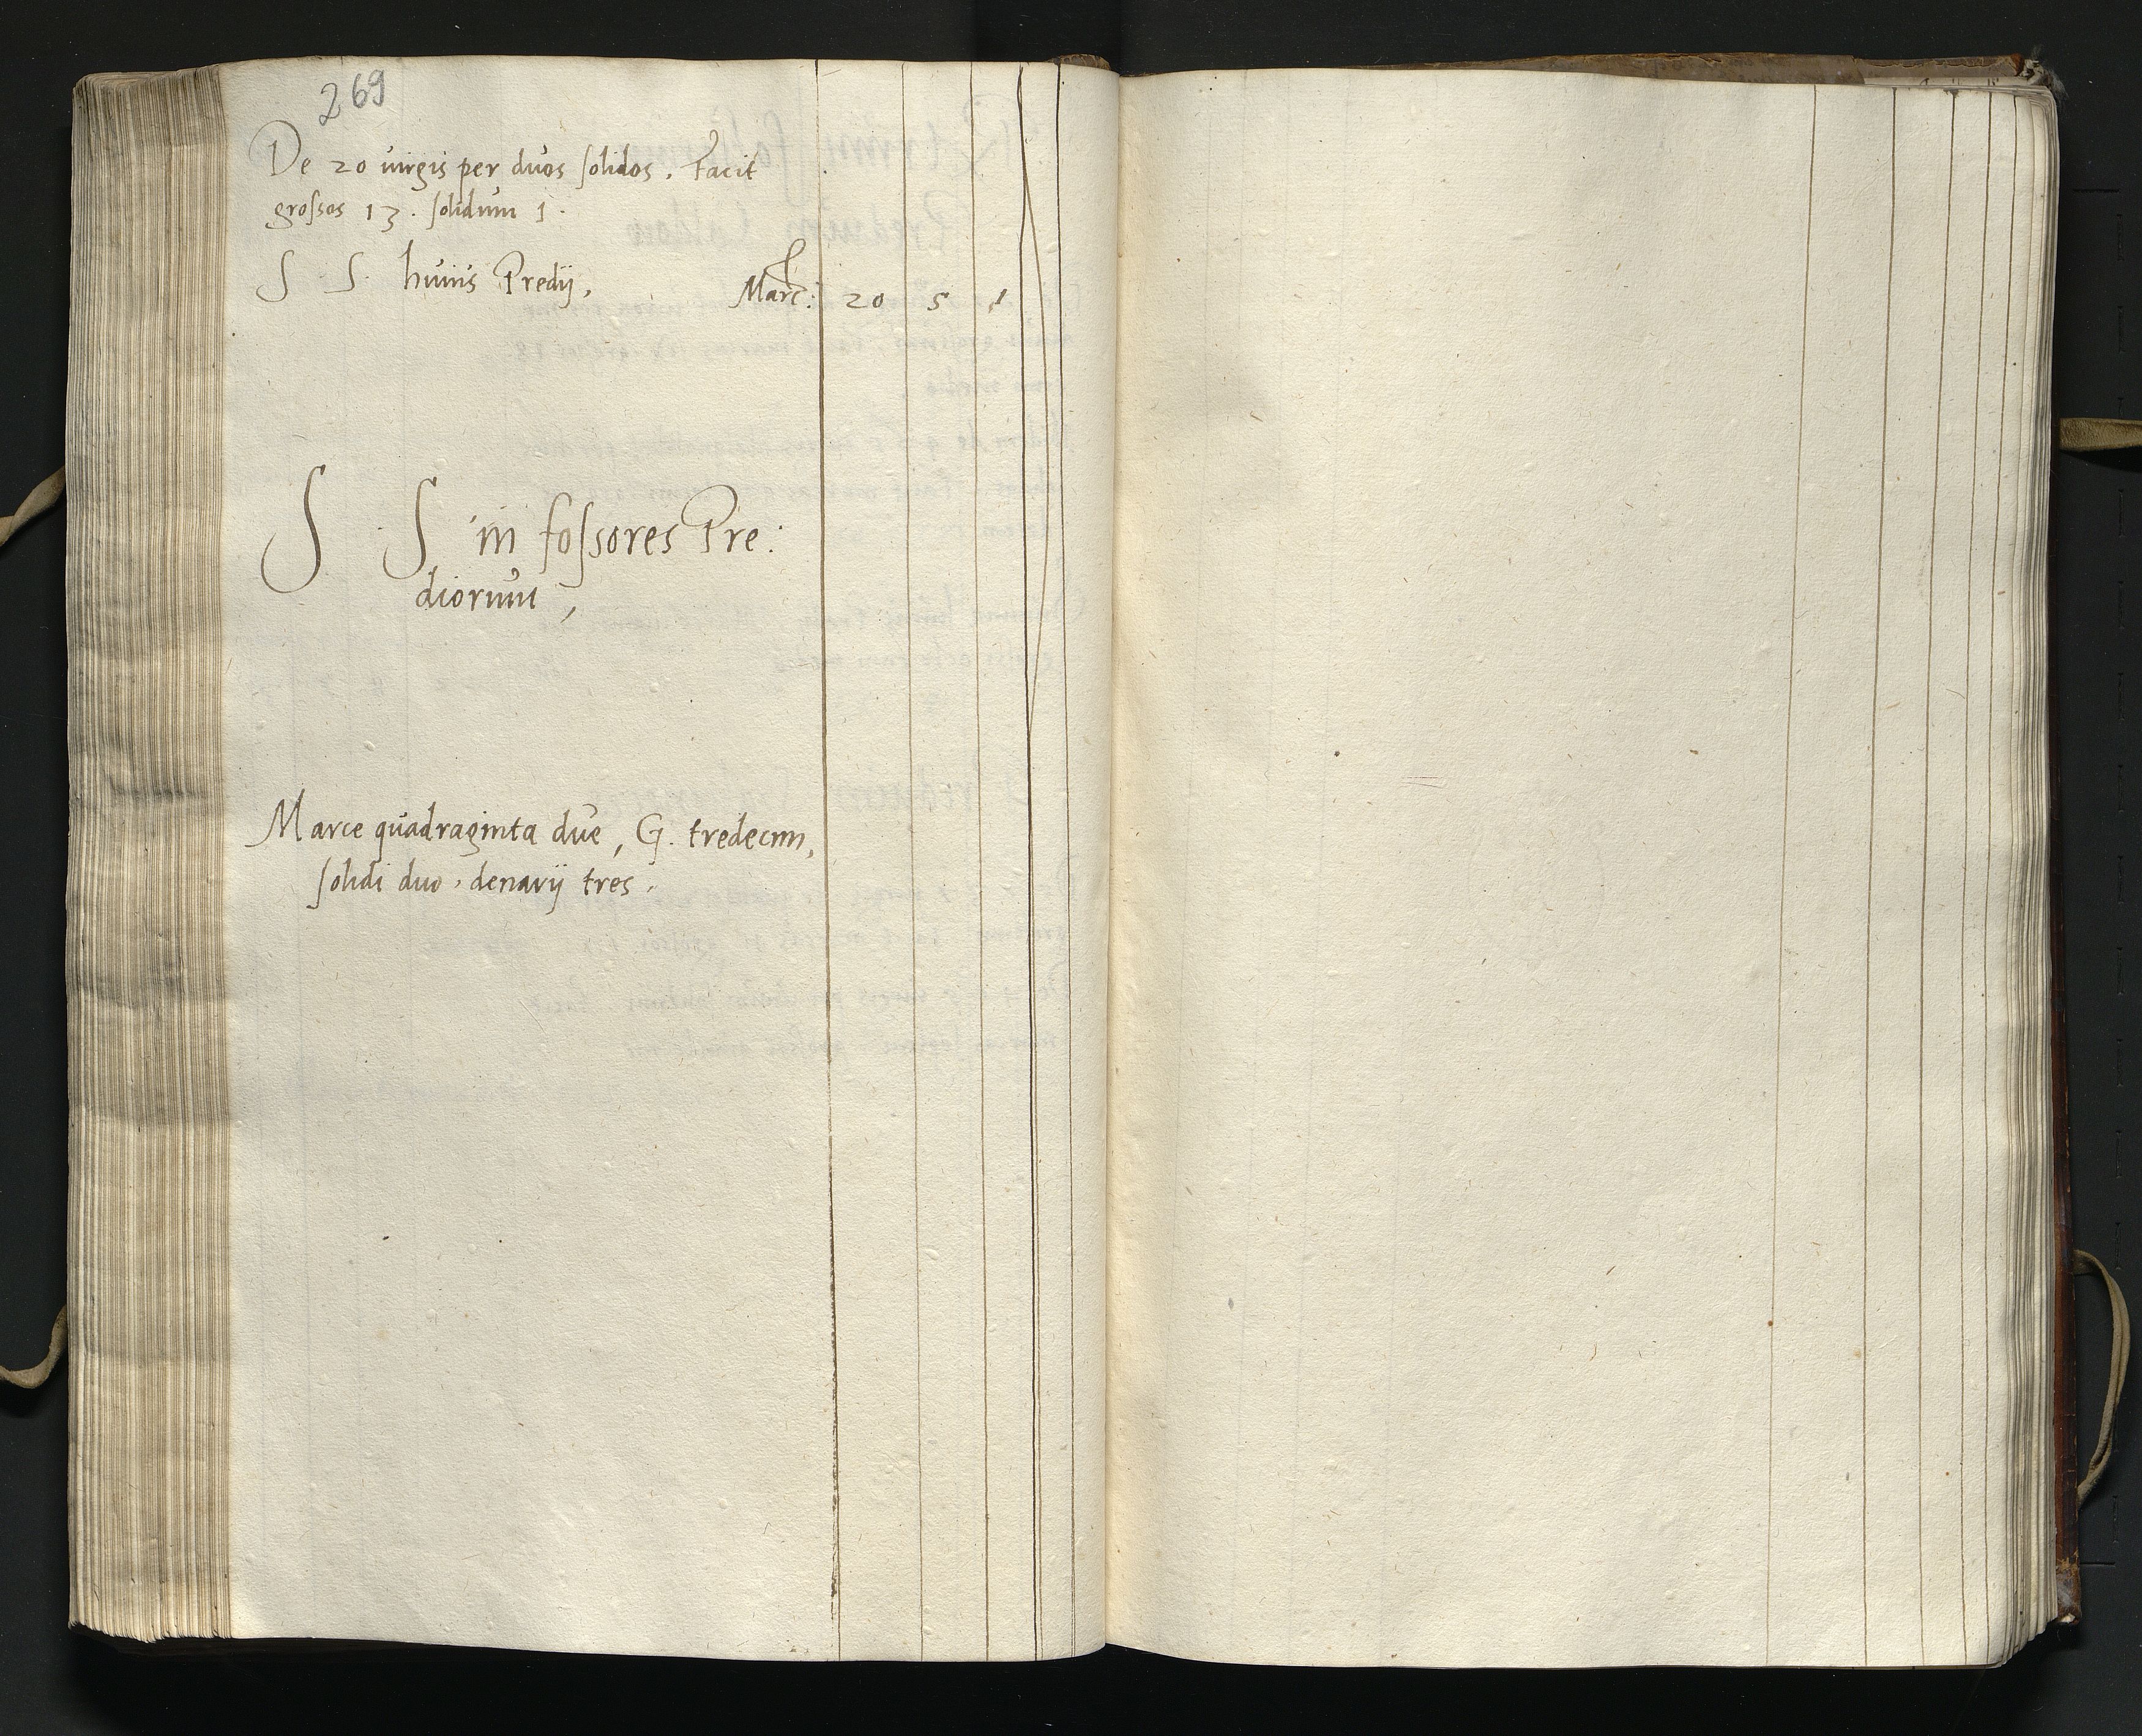 269
De 20 virgis per duos solidos. Facit
grossos 13. solidum 1.
S S. huius Predij, Marc: 20 5 1
S S in fossores Pre:
diorum,
Marce quadraginta due, G. tredecim,
solidi duo, denarij tres.